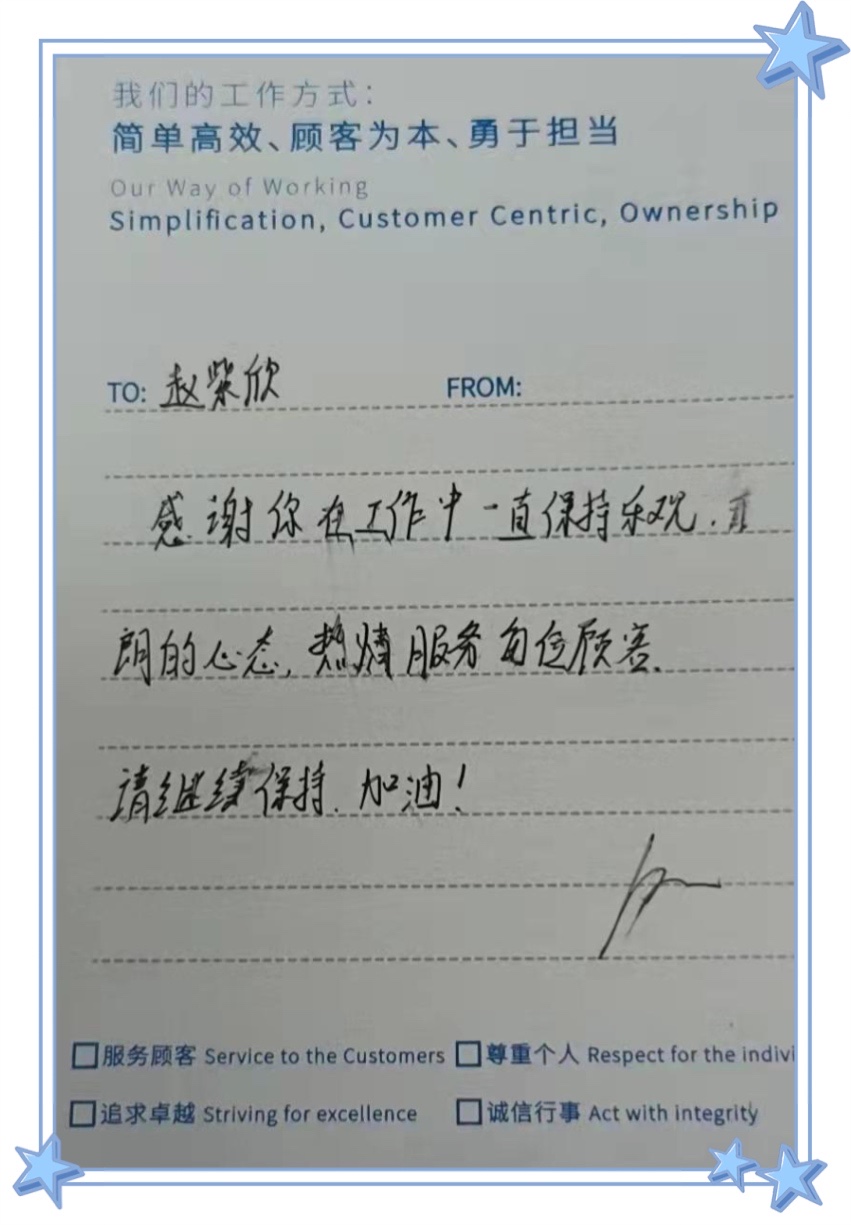 我们的工作方式：
简单高效、顾客为本、勇于担当
Our Way of Working
Simplification, Customer Centric, Ownership
TO: 赵荣欣 FROM:
感谢你在工作中一直保持乐观、
朗的心态，热情服务每位顾客、
请继续保持、加油！
服务顾客 Service to the Customers 尊重个人 Respect for the indivi
追求卓越 Striving for excellence 诚信行事 Act with integrity